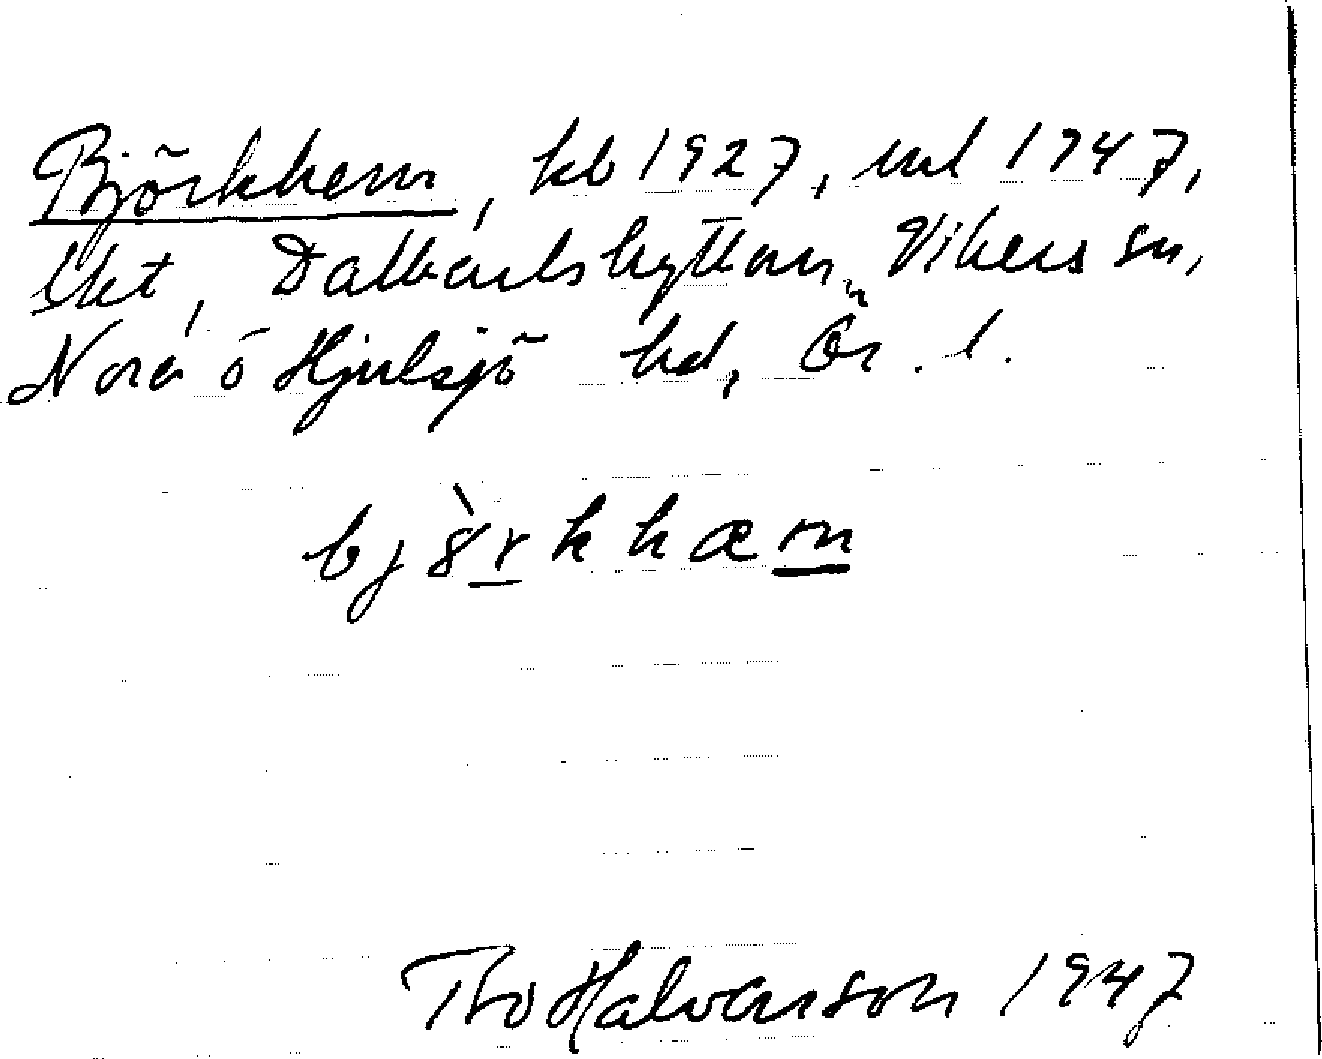 Björkhem, kb 1927, ml 1947,
lht, Dalkarlshyttan, Vikers sn,
Nora o Hjulsjö hd, Ör. l.
bj8̀rkhæm
Tho Halvarson 1947